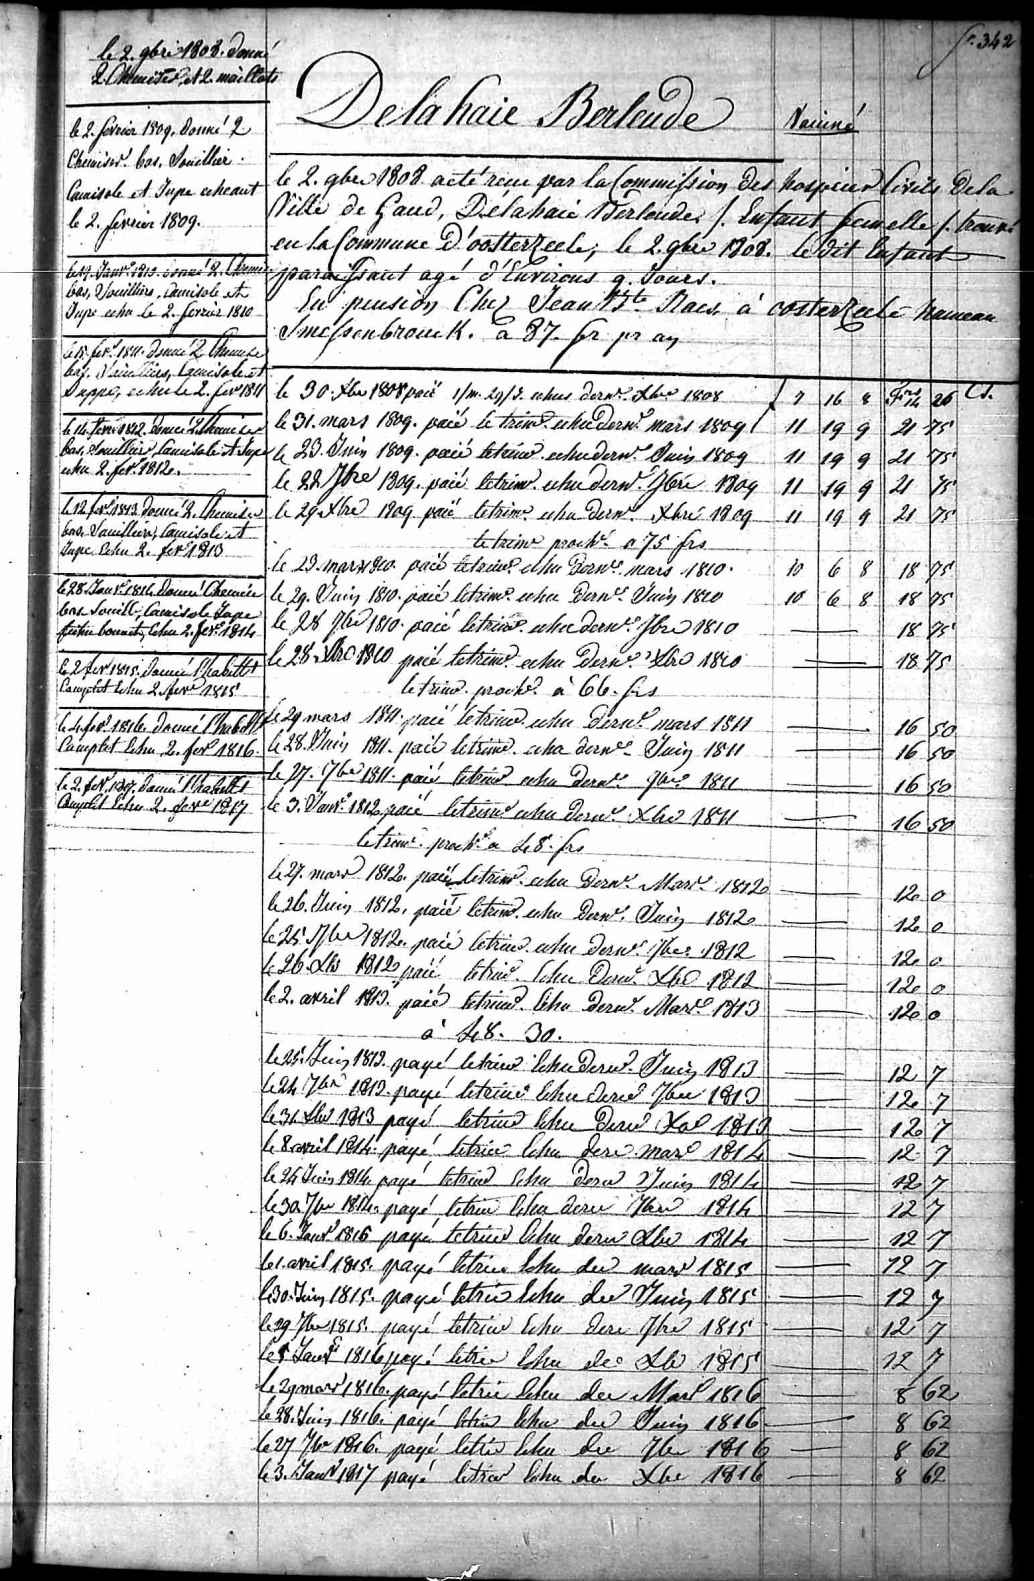 f. 342
le 2. 9bre 1808. donné
2 Chemises et 2 maillots
le 2. fevrier 1809. donné 2
Chemises. bas. Souillier.
Camisole et Jupe echeant
le 2. fevrier 1809.
le 17. Janvr. 1810. donné 2. Chemise
bas, Souilliers, Camisole et
Jupe echu le 2. fevrier 1810
le 15. fevr. 1811. donné 2 Chemise
bas. Souilliers, Camisole et
Juppe, echu le 2. fevr 1811
le 14. fevr. 1812. donné 2 Chemises
bas, Souillier, Camisole et Jupe
echu 2. fevr. 1812.
le 12 fevr. 1813 donné 2. Chemise
bas. Souilliers, Camisole et
Jupe Echu 2. fevr. 1813
le 28. Janvr. 1814. donné Chemise
bas Souill, Camisole Jupe
bonnet, Echu 2. fevr. 1814
le 2 fevr. 1815. donné l'habillt
Complet Echu 2. fevr 1815
le 4. fevr. 1816. donné l'habillt
Complet Echu 2. fevr. 1816.
le 2. fevr. 1817. donné l'habillt
Complet Echu 2. fevr 1817
Delahaie Berleude
Vacciné
le 2. 9bre 1808. acté reçu par la Commission des hospices Civils de la
Ville de Gand, Delahaie Berleude, /. Enfant femelle /. trouvé
en la Commune d'oosterzeele, le 2. 9bre 1808. le dit Enfant
paraissant agé d'Environs 9. Jours.
En pension Chez Jean Bte Raes, à oosterzeele hameau
Smessenbrouck. à 87. fr pr an
le 30. Xbre 1808 paié 1/m. 29/J. echus dernr. Xbre 1808 7 16 8 Frs 14 26 Cs.
le 31. mars 1809. paié le trim. echu dernr. mars 1809 11 19 9 21 75
le 23 Juin 1809. paié le trim. echu dernr. Juin 1809 11 19 9 21 75
le 22 7bre 1809. paié le trim. echu dernr. 7bre 1809 11 19 9 21 75
le 29. Xbre 1809 paié le trim. echu dernr. Xbre 1809 11 19 9 21 75
le trim prochn. a 75 frs
le 23. mars 1810. paié le trimr. echu dernr. mars 1810. 10 6 8 18 75
le 29. Juin 1810. paié le trim. echu dernr. Juin 1810 10 6 8 18 75
le 28 7bre 1810. paié le trim. echu dernr. 7bre 1810 18 75
le 28. Xbre 1810 paié le trim. echu dernr. Xbre 1810 18 75
le trim. prochn. à 66. frs
le 29 mars 1811. paié le trim. echu dernr. mars 1811 16 50
le 28. Juin 1811. paié le trim. echu dernr. Juin 1811 16 50
le 27. 7bre 1811. paié le trim echu dernr. 7bre 1811 16 50
le 3. Janvr. 1812. paié le trimr echu dernr. Xbre 1811 16 50
le trimr. prochn. a 48. frs
le 27. mars 1812. paié le trim. echu dernr. Mars. 1812 12 0
le 26. Juin 1812. paié le trim. echu dernr. Juin 1812 12 0
le 25 7bre 1812. paié le trim. echu dernr. 7bre. 1812 12 0
le 26. Xbre 1812 paié le trim. Echu Dernr. Xbre 1812 12 0
le 2. avril 1813. paié le trimr. Echu dernr. Mars. 1813 12 0
à 48. 30.
le 25. Juin 1813. payé le trimr Echu Dernr. Juin 1813 12 7
le 24 7bre 1813. payé le trimr Echu dernr 7bre 1813 12 7
le 31 Xbre 1813 payé le trimr Echu Dernr Xbre 1813 12 7
le 8 avril 1814. payé le trim Echu dere mars 1814 12 7
le 24 Juin 1814. payé le trim Echu dern Juin 1814 12 7
le 30 7bre 1814. payé le trim Echu dern 7bre 1814 12 7
le 6. Janvr 1815 payé le trim Echu dern Xbre 1814 12 7
le 1. avril 1815. payé le trim Echu der mars 1815 12 7
le 30. Juin 1815. payé le trim Echu der Juin 1815 12 7
le 29 7bre 1815. payé le trim Echu dere 7bre 1815 12 7
le 5 Janvr 1816 payé le trim Echu der Xbre 1815 12 7
le 29 mars 1816. payé le trim Echu der Mars 1816 8 62
le 28. Juin 1816. payé le trim Echu der Juin 1816 8 62
le 27 7bre 1816. payé le trim Echu der 7bre 1816 8 62
le 3. Janvr 1817 payé le trim Echu der Xbre 1816 8 62